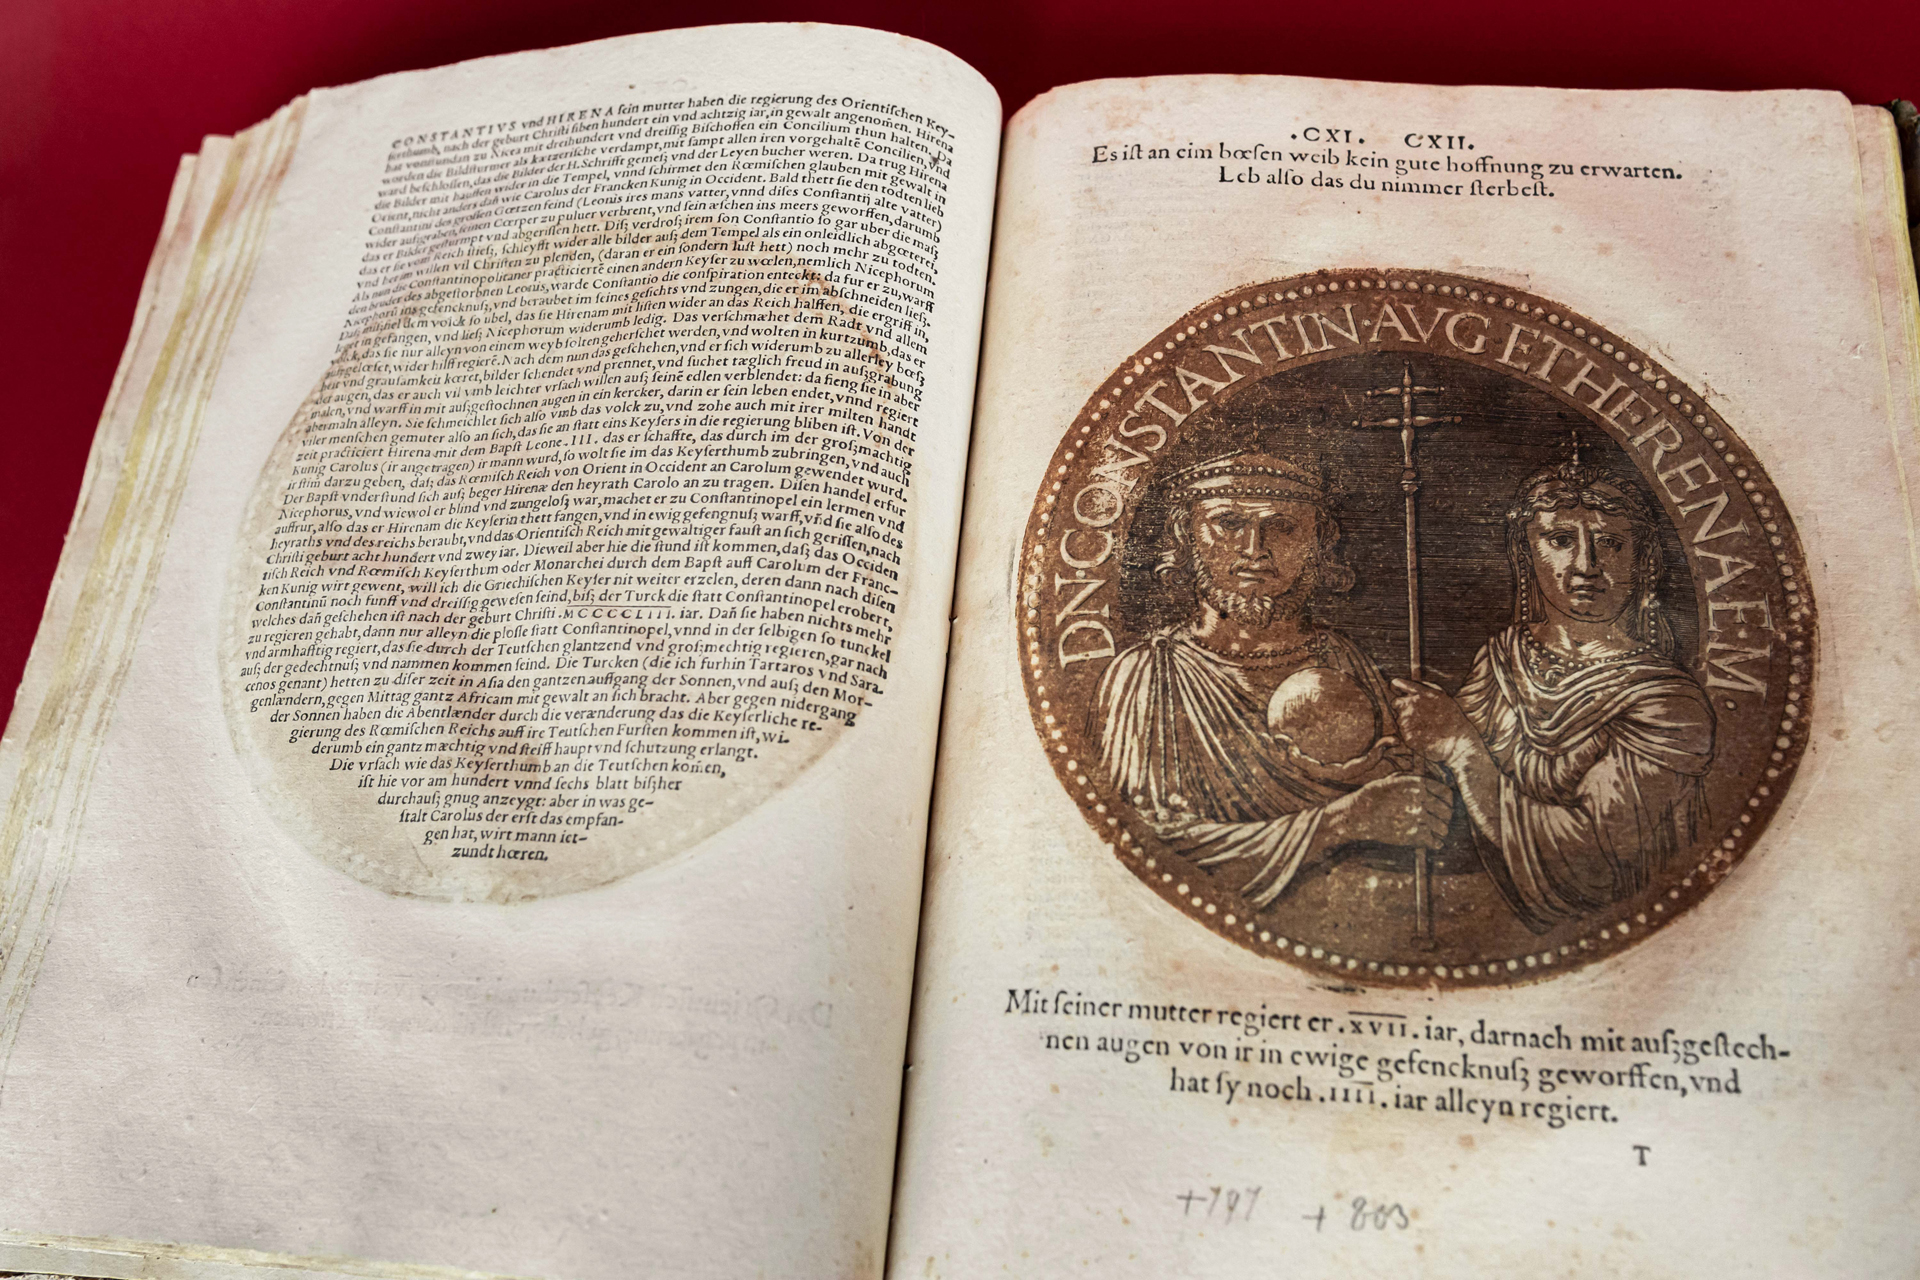 CONSTANTIVS vnd HIRENA ſein mutter haben die regierung des Orientiſchen Key-
ſerthumb, nach der geburt Chriſti ſiben hundert ein vnd achtzig iar, in gewalt angenom̃en. Hirena
hat vonſtundan zu Nicea mit dreihundert vnd dreiſſig Biſchoffen ein Concilium thun halten. Da
worden die Bildſturmer als kætzeriſche verdampt, mit ſampt allen iren vorgehaltẽ Concilien, vnd
ward beſchloſſen, das die Bilder der H. Schrifft gemeſʒ vnd der Leyen bucher weren. Da trug Hirena
die Bilder mit hauffen wider in die Tempel, vnnd ſchirmet den Rœmiſchen glauben mit gewalt in
Orient, nicht anders dañ wie Carolus der Francken Kunig in Occident. Bald thett ſie den todten lieb
Conſtantini des groſſen Gœtzen feind (Leonis ires mans vatter, vnnd diſes Conſtantij alte vatter)
wider auſgraben, ſeinen Cœrper zu puluer verbrent, vnd ſein æſchen ins meers geworffen, darumb
das er Bilder geſturmpt vnd abgeriſſen hett. Diſʒ verdroſʒ irem ſon Conſtantio ſo gar uber die maſʒ
das er ſie vom Reich ſtieſʒ, ſchleyfft wider alle bilder auſʒ dem Tempel als ein onleidlich abgœterei,
vnd bei im willen vil Chriſten zu plenden, (daran er ein ſondern luſt hett) noch mehr zu todten.
Als nun die Conſtantinopolitaner practiciertẽ einen andern Keyſer zu wœlen, nemlich Nicephorum
den bruder des abgeſtorbnen Leonis, warde Conſtantio die conſpiration enteckt: da fur er zu, warff
Nicephorũ ins gefencknuſʒ, vnd beraubet im ſeines geſichts vnd zungen, die er im abſchneiden lieſʒ.
Daſʒ miſʒfiel dem volck ſo ubel, das ſie Hirenam mit liſten wider an das Reich halffen, die ergriff in,
leget in gefangen, vnd lieſʒ Nicephorum widerumb ledig. Das verſchmæhet dem Radt vnd allem
volck, das ſie nur alleyn von einem weyb ſolten geherſchet werden, vnd wolten in kurtzumb, das er
auſgelœſet, wider hilff regierẽ. Nach dem nun das geſchehen, vnd er ſich widerumb zu allerley bœſʒ
heit vnd grauſamkeit kœret, bilder ſchendet vnd prennet, vnd ſuchet tæglich freud in auſʒgrabung
der augen, das er auch vil vmb leichter vrſach willen auſʒ ſeinẽ edlen verblendet: da fieng ſie in aber
malen, vnd warff in mit auſʒgeſtochnen augen in ein kercker, darin er ſein leben endet, vnnd regiert
abermaln alleyn. Sie ſchmeichlet ſich alſo vmb das volck zu, vnd zohe auch mit irer milten handt
viler menſchen gemuter alſo an ſich, das ſie an ſtatt eins Keyſers in die regierung bliben iſt. Von der
zeit practiciert Hirena mit dem Bapſt Leone .III. das er ſchaffte, das durch im der groſʒmæchtig
Kunig Carolus (ir angetragen) ir mann wurd, ſo wolt ſie im das Keyſerthumb zubringen, vnd auch
ir ſtim̃ darzu geben, daſʒ das Rœmiſch Reich von Orient in Occident an Carolum gewendet wurd.
Der Bapſt vnderſtund ſich auſʒ beger Hirenæ den heyrath Carolo an zu tragen. Diſen handel erfur
Nicephorus, vnd wiewol er blind vnd zungeloſʒ war, machet er zu Conſtantinopel ein lermen vnd
auffrur, alſo das er Hirenam die Keyſerin thett fangen, vnd in ewig gefengnuſʒ warff, vñd ſie alſo des
heyraths vnd des reichs beraubt, vnd das Orientiſch Reich mit gewaltiger fauſt an ſich geriſſen, nach
Chriſti geburt acht hundert vnd zwey iar. Dieweil aber hie die ſtund iſt kommen, daſʒ das Occiden
tiſch Reich vnd Rœmiſch Keyſerthum oder Monarchei durch dem Bapſt auff Carolum der Franc-
ken Kunig wirt gewent, will ich die Griechiſchen Keyſer nit weiter erzelen, deren dann nach diſen
Conſtantinũ noch funff vnd dreiſſig geweſen ſeind, biſʒ der Turck die ſtatt Conſtantinopel erobert,
welches dañ geſchehen iſt nach der geburt Chriſti .MCCCCLIII. iar. Dañ ſie haben nichts mehr
zu regieren gehabt, dann nur alleyn die ploſſe ſtatt Conſtantinopel, vnnd in der ſelbigen ſo tunckel
vnd armhafftig regiert, das ſie durch der Teutſchen glantzend vnd groſʒmechtig regieren, gar nach
auſʒ der gedechtnuſʒ vnd nammen kommen ſeind. Die Turcken (die ich furhin Tartaros vnd Sara-
cenos genant) hetten zu diſer zeit in Aſia den gantzen auffgang der Sonnen, vnd auſʒ den Mor-
genlændern, gegen Mittag gantz Africam mit gewalt an ſich bracht. Aber gegen nidergang
der Sonnen haben die Abentlænder durch die verænderung das die Keyſerliche re-
gierung des Rœmiſchen Reichs auff ire Teutſchen Furſten kommen iſt, wi-
derumb ein gantz mæchtig vnd ſteiff haupt vnd ſchutzung erlangt.
Die vrſach wie das Keyſerthumb an die Teutſchen kom̃en,
iſt hie vor am hundert vnnd ſechs blatt biſʒher
durchauſʒ gnug anzeygt: aber in was ge-
ſtalt Carolus der erſt das empfan-
gen hat, wirt mann iet-
zundt hœren.
.CXI. CXII.
Es iſt an eim bœſen weib kein gute hoffnung zu erwarten.
Leb alſo das du nimmer ſterbeſt.
DN·CONSTANTIN·AVG·ET·HERENAE·M·
Mit ſeiner mutter regiert er .XVII. iar, darnach mit auſʒgeſtech-
nen augen von ir in ewige gefencknuſʒ geworffen, vnd
hat ſy noch .IIII. iar alleyn regiert.
T
+797 + 803